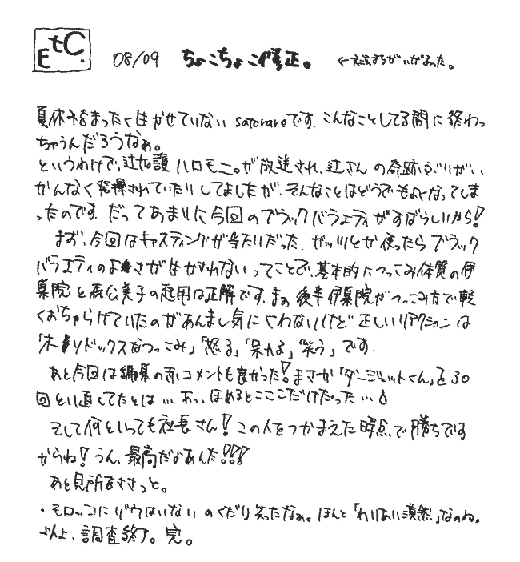 EtC.
08/09 ちょこちょこ修正。
夏休みをまったく生かせていない sateraroです。こんなことしてる間に終わっ
ちゃうんだろうなぁ。
というわけで、辻加護ハロモニ。が放送され、辻さんの奇跡ぶりがい
かんなく発揮されていたりしてましたが、そんなことはどうでもよくなってしま
ったのです。だってあまりに今回のブラックバラエティがすばらしいから!
まず、今回はキャスティングが当たりだった。ガッツとか使ったらブラック
バラエティのよさが生かされないってことで、基本的につっこみ体質の伊
集院と森公美子の起用は正解です。まぁ後半伊集院がつっこみ方で軽
くおちゃらけていたのがあんまし気にくわないけど 正しいリアクションは
「オーソドックスなつっこみ」「怒る」「呆れる」「笑う」です。
あと今回は編集の赤コメントも良かった!まさか「ダージリットくん」を30
回とい直してたとは… おっ、ほめるとこここだけだった…♪
そして何といっても社長さん!この人をつかまえた時点で勝ちです
からね!うん、最高だなあんた!!!
あと見所をささっと。
・モロッコにゾウはいない のくだり笑ったなぁ。ほんと「わりあい漠然」なのね。
調査終了。完。